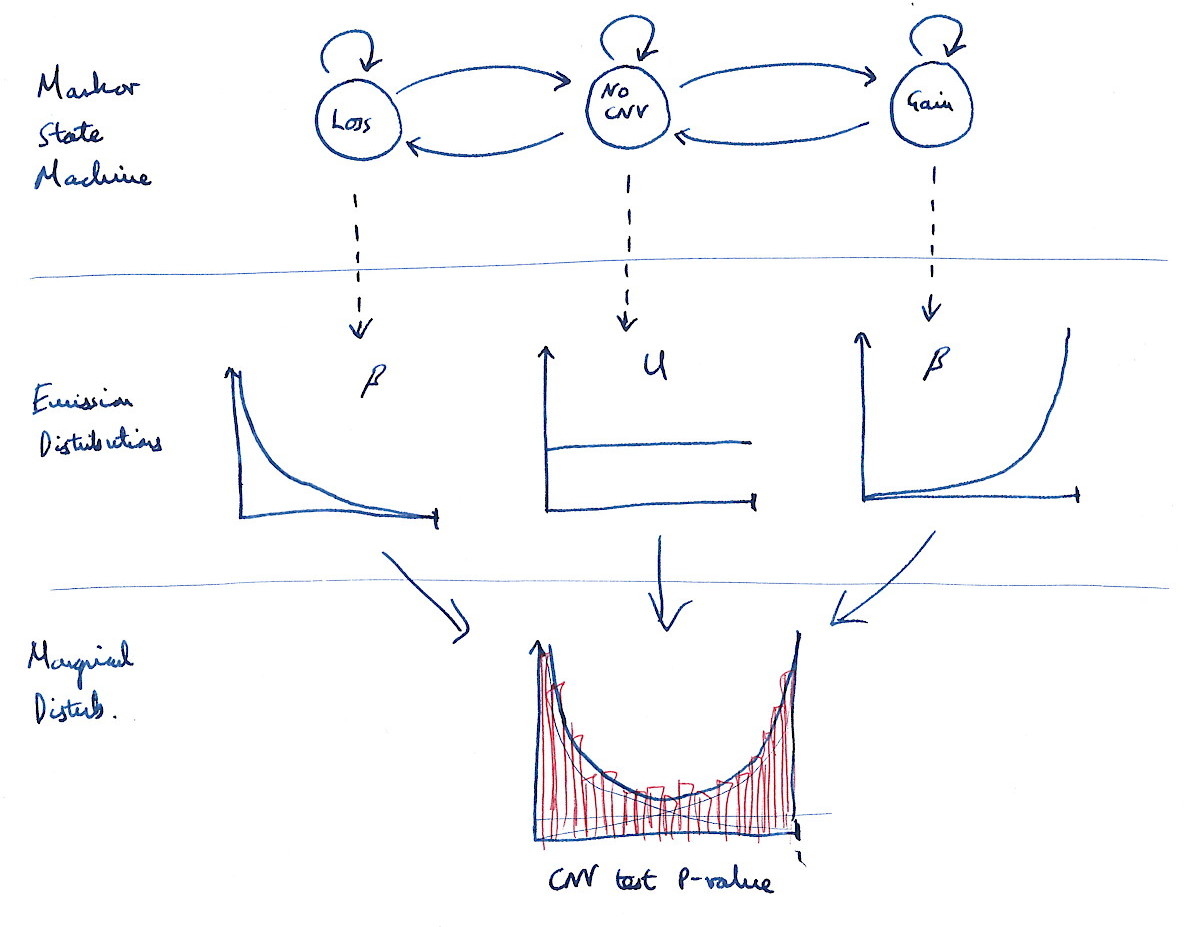 Markov
State
Machine
Loss
No
CNV
Gain
Emission
Distributions
β
U
β
Marginal
Distrib.
CNV test P-value
1